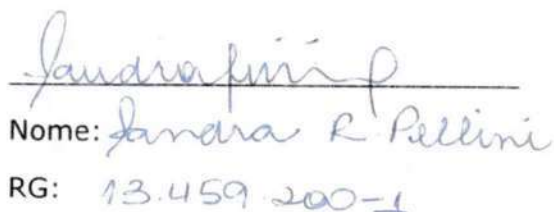 Sandra
Nome: Sandra R. Pellini
RG: 13.459.200-1